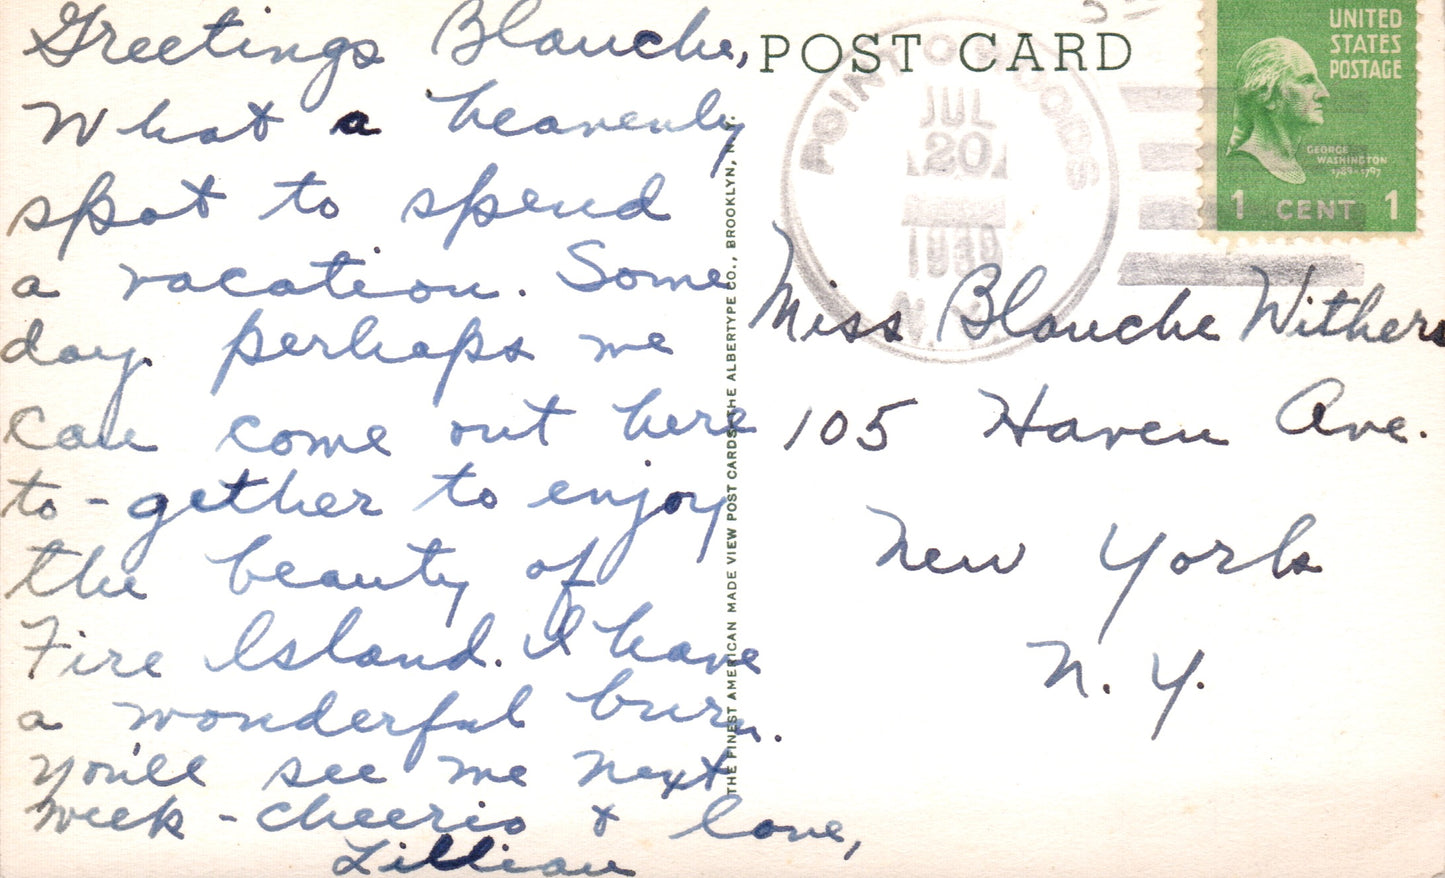 Greetings Blanche,
What a heavenly
spot to spend
a vacation. Some
day perhaps we
can come out here
to-gether to enjoy
the beauty of
Fire Island. I have
a wonderful burn.
You'll see me next
week - cheerio & love,
Lillian
THE FINEST AMERICAN MADE VIEW POST CARDS THE ALBERTYPE CO., BROOKLYN, N.Y.
POST CARD
POINT O' WOODS
JUL
20
N.Y.
UNITED
STATES
POSTAGE
GEORGE
WASHINGTON
1789-1797
1 CENT 1
Miss Blanche Withers
105 Haven Ave.
New York
N. Y.